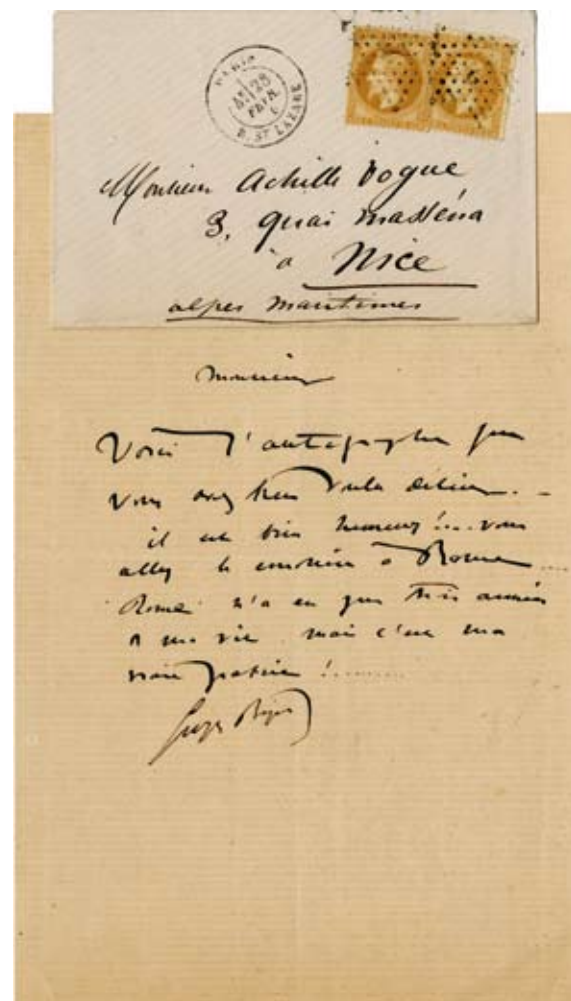 PARIS
28
FEVR.
R. ST LAZARE
Monsieur Achille Vogue
3, quai Masséna
à Nice
alpes maritimes
monsieur
Voici l'autographe que
vous avez bien voulu désirer...
il est bien heureux!... vous
allez le emmener à Rome....
Rome n'a eu que trois années
de ma vie mais c'est ma
vraie patrie!........
Georges Bizet